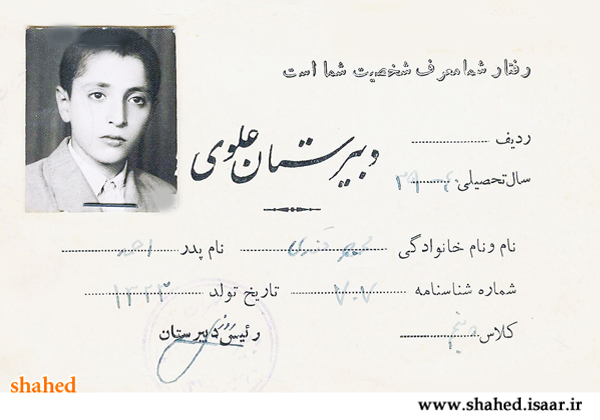 رفتار شما معرف شخصیت شما است
دبیرستان علوی
ردیف
سال تحصیلی ۴۰-۳۹
نام و نام خانوادگی نام پدر احمد
شماره شناسنامه ۷۰۷ تاریخ تولد ۱۳۲۳
کلاس پنجم
رئیس دبیرستان
shahed
www.shahed.isaar.ir